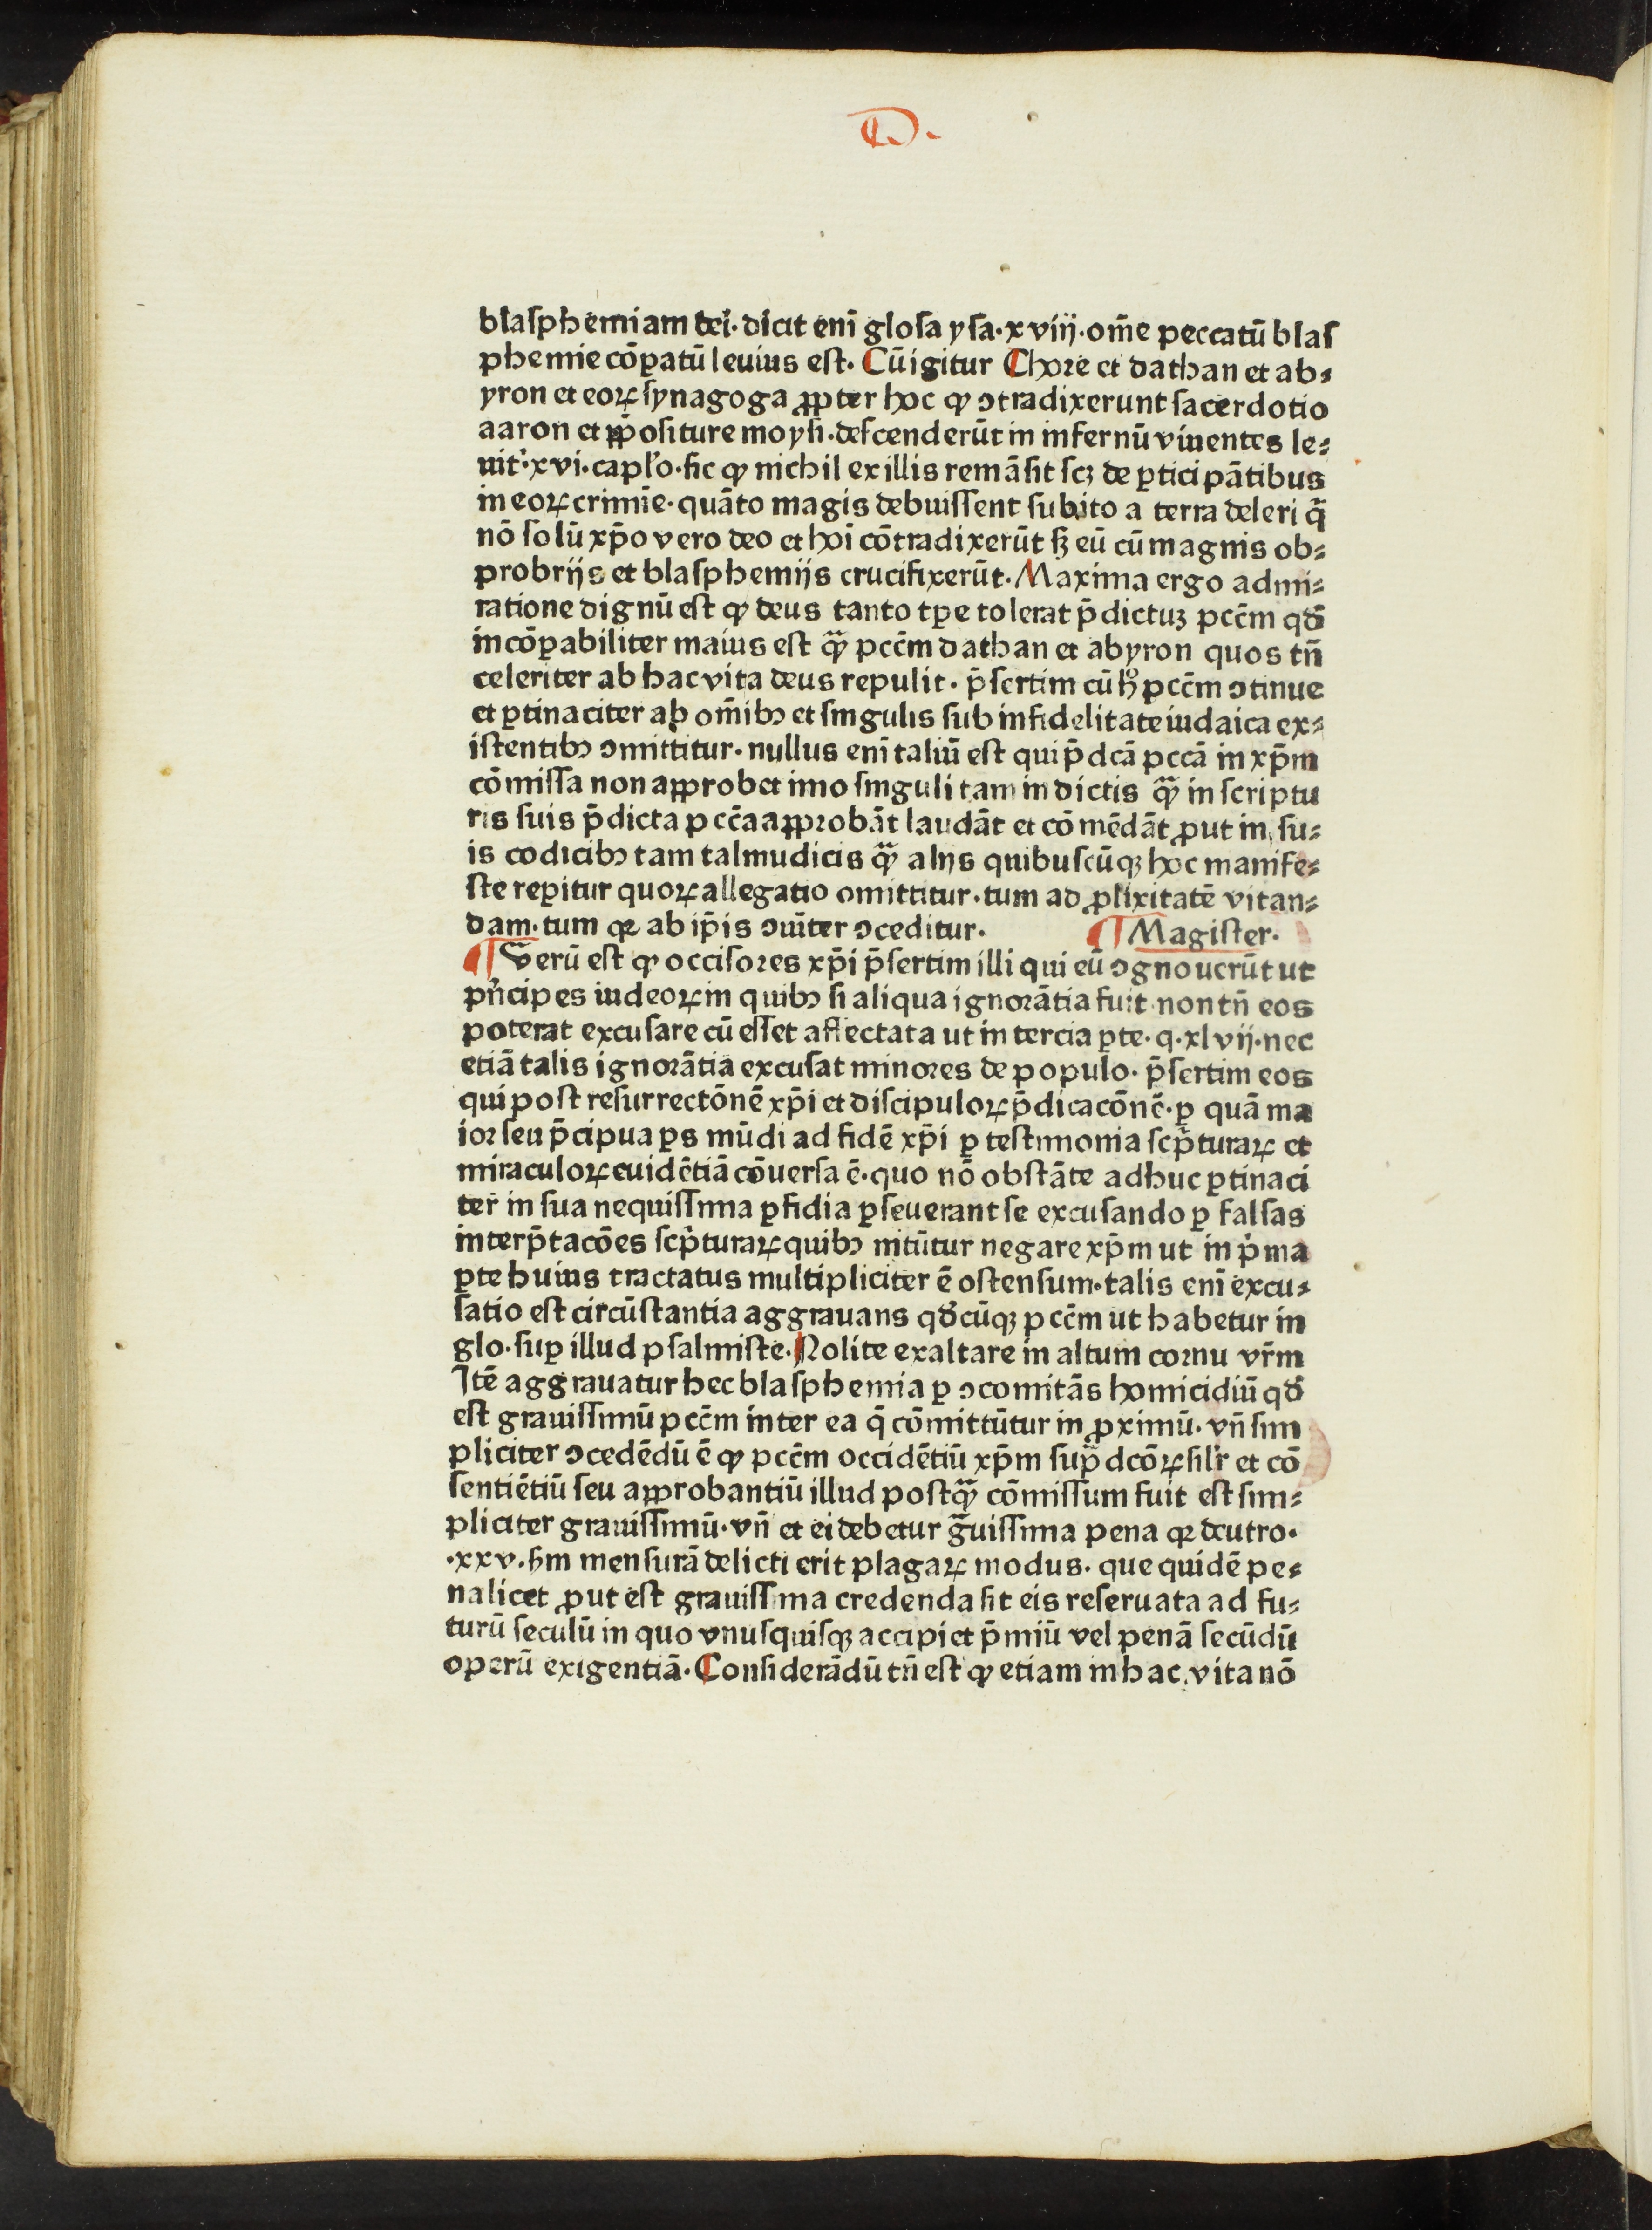 D.
blasphemiam dei. dicit eni̅ glosa ysa. xviij. om̅e peccatu̅ blas
phemie co̅ꝑatu̅ leuius est. Cu̅ igitur Chore et dathan et ab⸗
yron et eoꝝ synagoga ꝓpter hoc ꝙ ↄtradixerunt sacerdotio
aaron et p̅positure moysi. descenderu̅t in infernu̅ viuentes le⸗
uit'. xvi. caplo. sic ꝙ nichil ex illis rema̅sit scꝫ de ꝑticipa̅tibus
in eoꝝ crimi̅e. qua̅to magis debuissent subito a terra deleri q̅
no̅ solu̅ xp̅o vero deo et hoi̅ co̅tradixeru̅t sꝫ eu̅ cu̅ magnis ob⸗
probrijs et blasphemijs crucifixeru̅t. Maxima ergo admi⸗
ratione dignu̅ est ꝙ deus tanto tꝑe tolerat p̅dictuꝫ pcc̅m qd̅
inco̅ꝑabiliter maius est qᷓꝫ pcc̅m dathan et abyron quos tn̅
celeriter ab hac vita deus repulit. p̅sertim cu̅ hͦ pcc̅m ↄtinue
et ꝑtinaciter ab om̅ibꝰ et singulis sub infidelitate iudaica ex⸗
istentibꝰ ↄmittitur. nullus eni̅ taliu̅ est qui p̅dca̅ pcca̅ in xp̅m
co̅missa non approbet imo singuli tam in dictis qᷓꝫ in scriptu
ris suis p̅dicta pcc̅a approba̅t lauda̅t et co̅me̅da̅t ꝓut in su⸗
is codicibꝰ tam talmudicis qᷓꝫ alijs quibuscu̅qꝫ hoc manife⸗
ste reꝑitur quoꝝ allegatio omittitur. tum ad ꝓlixitate̅ vitan⸗
dam. tum qꝛ ab ip̅is ↄui̅ter ↄceditur. ¶ Magister.
¶ Veru̅ est ꝙ occisores xp̅i p̅sertim illi qui eu̅ ↄgnoueru̅t ut
pn̅cipes iudeoꝝ in quibꝰ si aliqua ignora̅tia fuit non tn̅ eos
poterat excusare cu̅ esset affectata ut in tercia ꝑte. q. xlvij. nec
etia̅ talis ignora̅tia excusat minores de populo. p̅sertim eos
qui post resurrecto̅ne̅ xp̅i et discipuloꝝ p̅dicaco̅ne̅. ꝑ qua̅ ma
ior seu p̅cipua ꝑs mu̅di ad fide̅ xp̅i ꝑ testimonia scp̅turaꝝ et
miraculoꝝ euide̅tia̅ co̅uersa e̅. quo no̅ obsta̅te adhuc ꝑtinaci
ter in sua nequissima ꝑfidia ꝑseuerant se excusando ꝑ falsas
interp̅taco̅es scp̅turaꝝ quibꝰ nitu̅tur negare xp̅m ut in pͥma
ꝑte huius tractatus multipliciter e̅ ostensum. talis eni̅ excu⸗
satio est circu̅stantia aggrauans qd̅cu̅qꝫ pcc̅m ut habetur in
glo. suꝑ illud psalmiste. Nolite exaltare in altum cornu vr̅m
Ite̅ aggrauatur hec blasphemia ꝑ ↄcomita̅s homicidiu̅ qd̅
est grauissimu̅ pcc̅m inter ea q̅ co̅mittu̅tur in ꝓximu̅. vn̅ sim
pliciter ↄcede̅du̅ e̅ ꝙ pcc̅m occide̅tiu̅ xp̅m sup̅dco̅ꝝ silr̅ et co̅
sentie̅tiu̅ seu approbantiu̅ illud postqᷓꝫ co̅missum fuit est sim⸗
pliciter grauissimu̅. vn̅ et ei debetur gᷓuissima pena qꝛ deutro.
.xxv. s̅m mensura̅ delicti erit plagaꝝ modus. que quide̅ pe⸗
na licet ꝓut est grauissima credenda sit eis reseruata ad fu⸗
turu̅ seculu̅ in quo vnusquisqꝫ accipiet p̅miu̅ vel pena̅ secu̅du̅
operu̅ exigentia̅. Considera̅du̅ tn̅ est ꝙ etiam in hac vita no̅